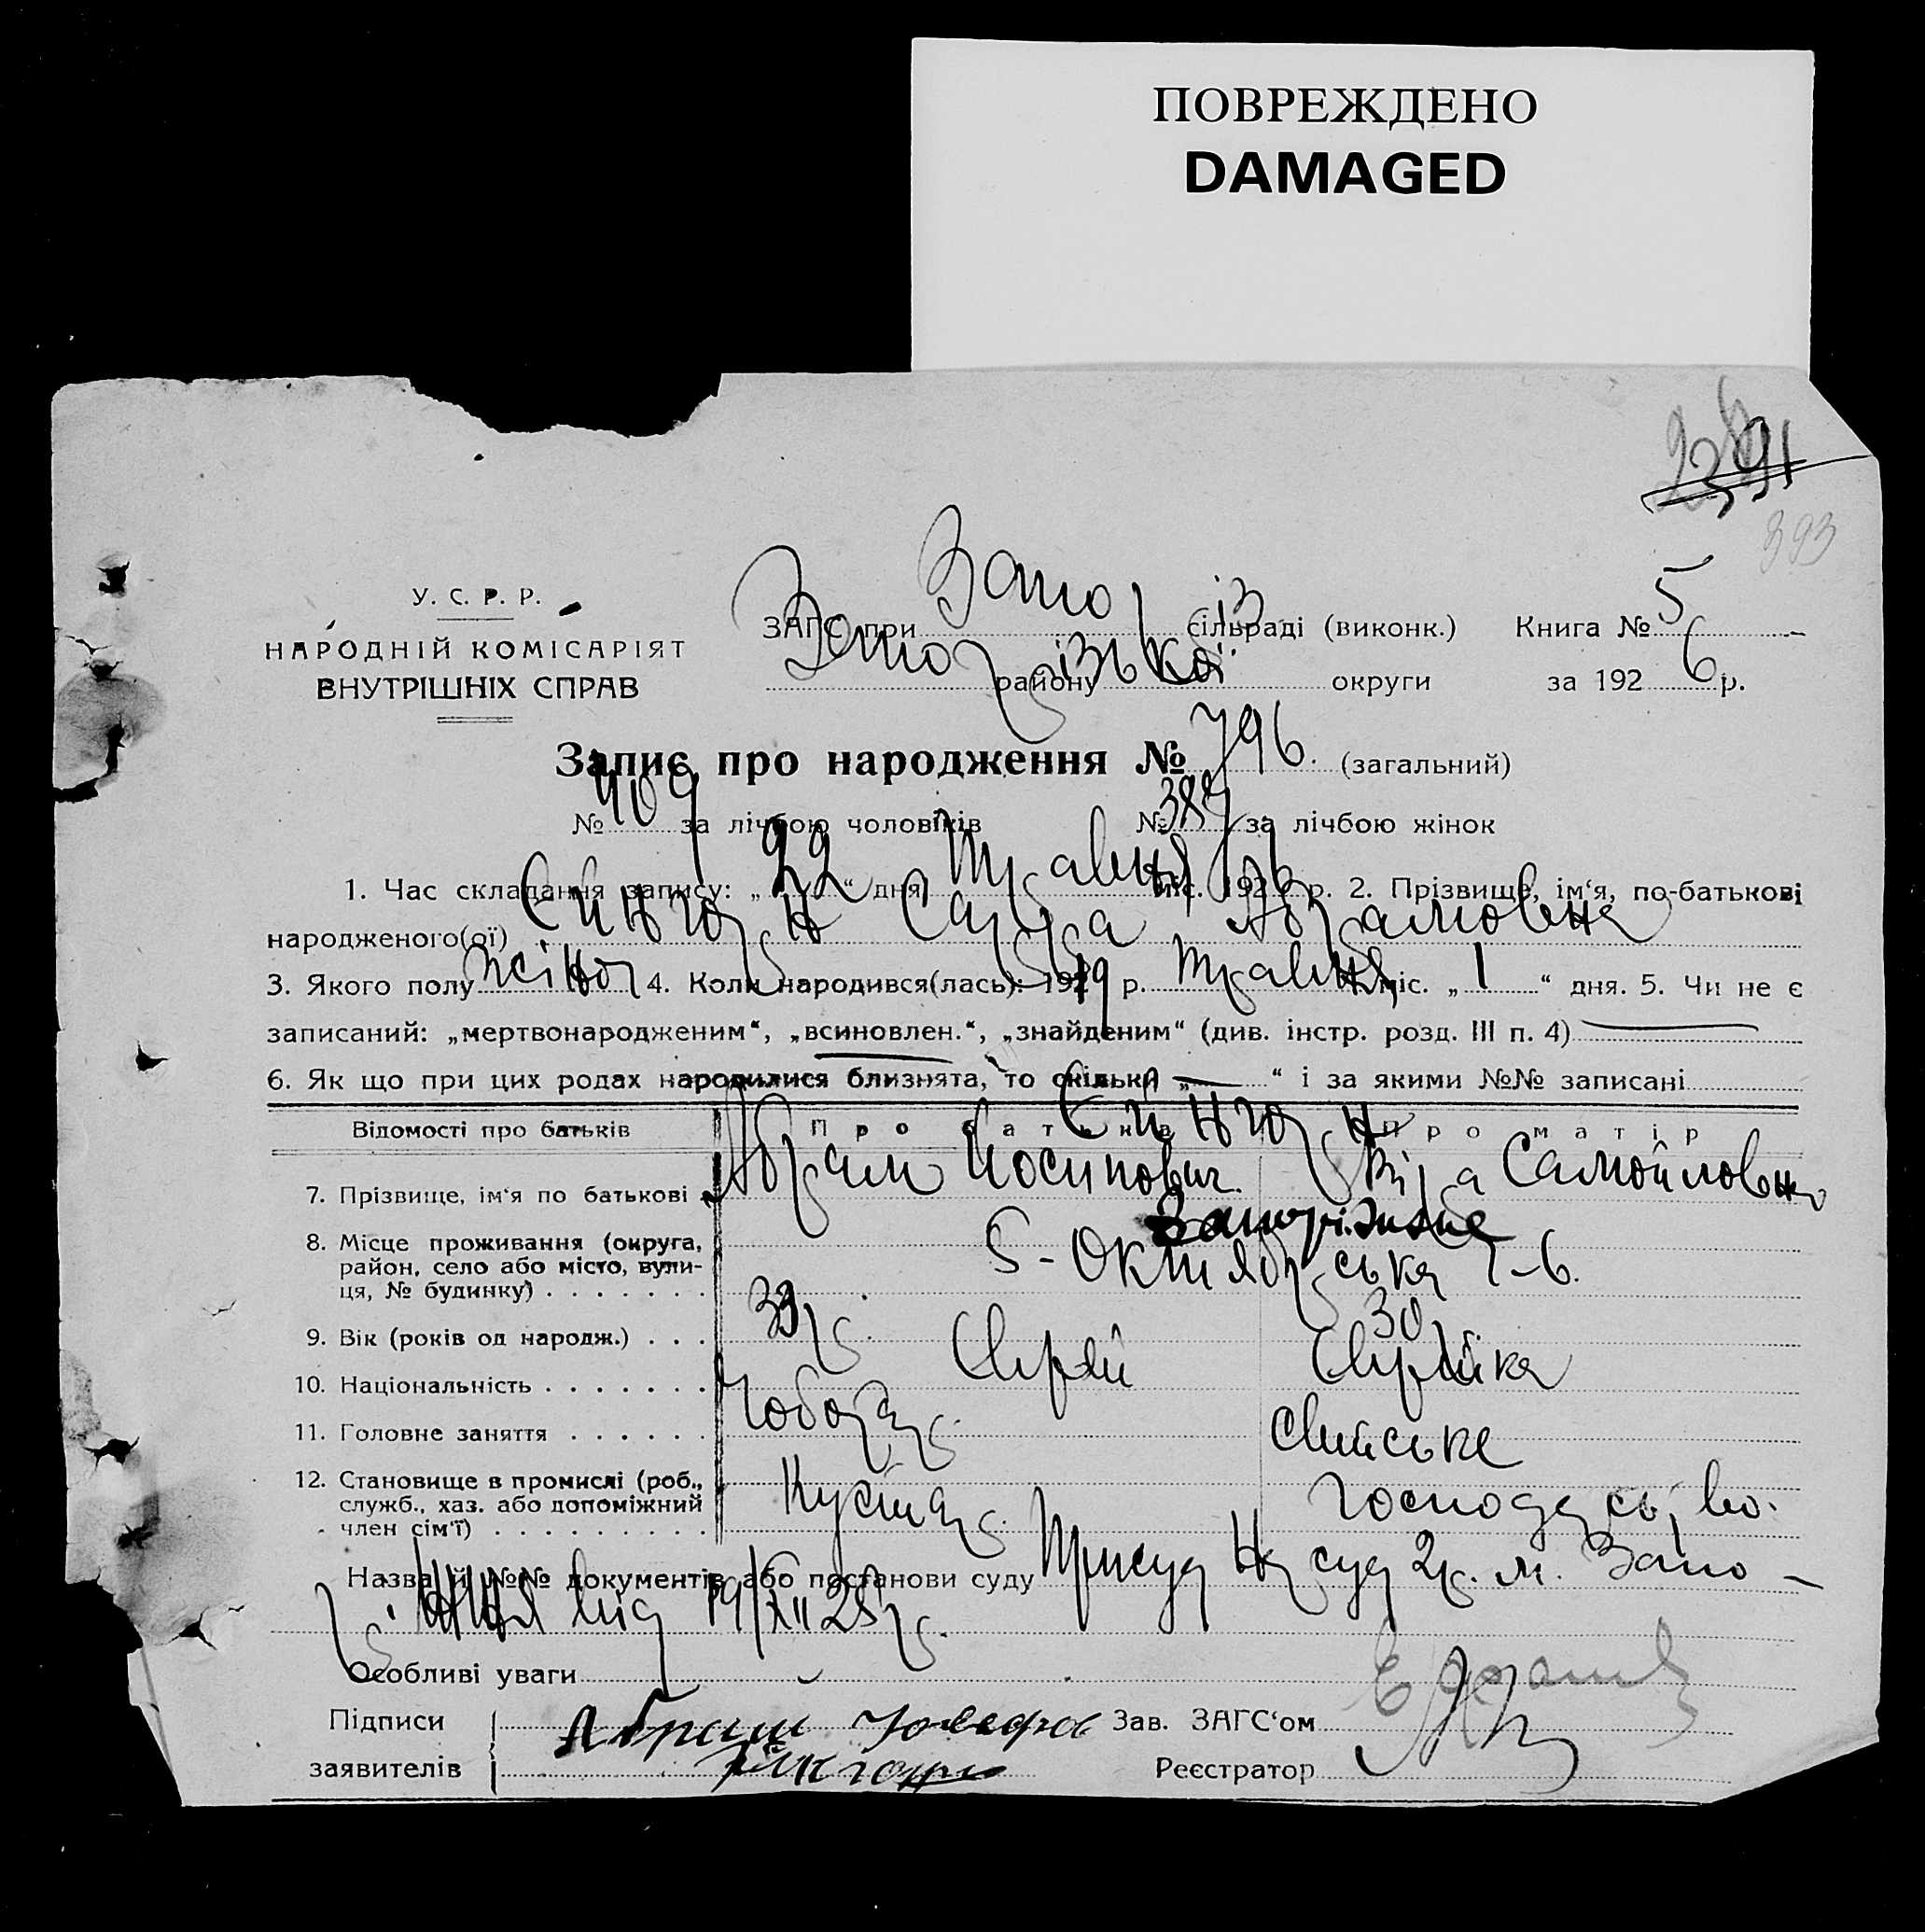 ПОВРЕЖДЕНО
DAMAGED
2391
393
У. С. Р. Р.
НАРОДНІЙ КОМІСАРІЯТ
ВНУТРІШНІХ СПРАВ
ЗАГС при Запоріз сільраді (виконк.) Книга № 5
району Запорізької округи за 1926 р.
Запис про народження № 796. (загальний)
№ 409 за лічбою чоловіків № 387 за лічбою жінок
1. Час складання запису: „22“ дня Травня міс. 1926 р. 2. Прізвище, ім‘я, по-батькові
народженого(ої) Сарра Абрамовна
3. Якого полу жіноч 4. Коли народився(лась): 1919 р. Травня міс. „1“ дня. 5. Чи не є
записаний: „мертвонародженим“, „всиновлен.“, „знайденим“ (див. інстр. розд. III п. 4)
6. Як що при цих родах народилися близнята, то скільки „—“ і за якими №№ записані
Відомості про батьків Про батька Про матір
7. Прізвище, ім‘я по батькові Абрам Йосипович. Самойловна
8. Місце проживання (округа, район, село або місто, вулиця, № будинку) Запоріжжє
5 - Октиябрська 7-6.
9. Вік (років од народж.) 39 р. 30 р.
10. Національність Єврей Єврейка
11. Головне заняття Чоботар.
12. Становище в промислі (роб., служб., хаз. або допоміжний член сім‘ї) Кустар. господарство.
Назва й №№ документів або постанови суду Присуд Нар суд 2 р. м. Запо-
ріжжя від 19/XII 25 р.
Особливі уваги
Підписи Абрам Зав. ЗАГС‘ом
заявителів Реєстратор